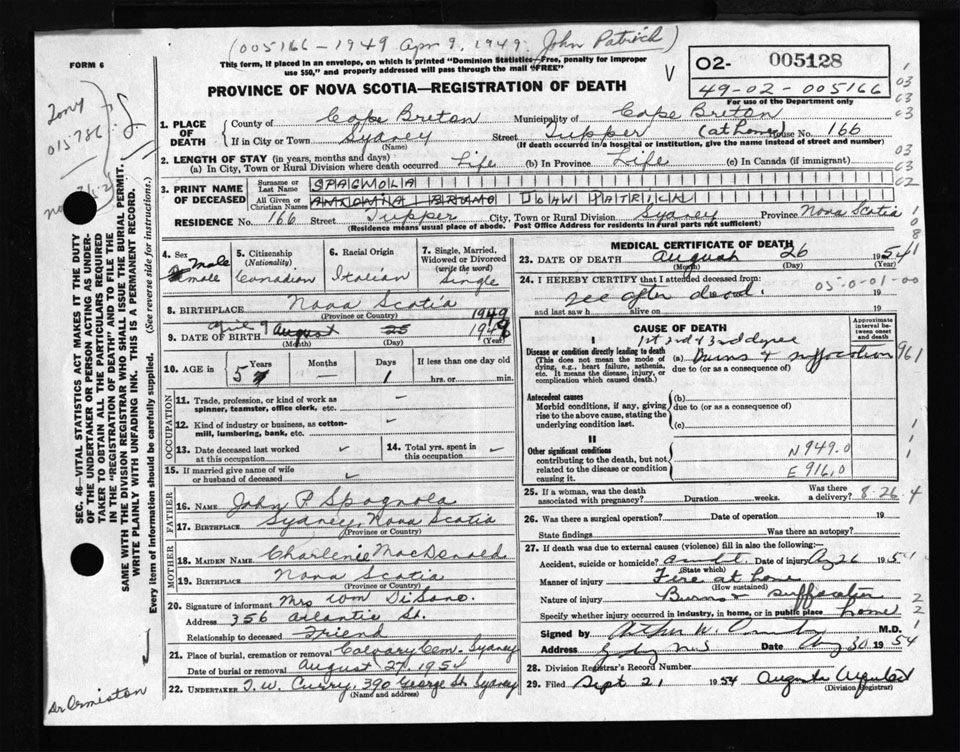 (005166-1949 Apr 9, 1949. John Patrick)
FORM 6
This form, if placed in an envelope, on which is printed "Dominion Statistics—Free, penalty for improper
use $50," and properly addressed will pass through the mail "FREE"
V
02- 005128
49-02-005166
For use of the Department only
PROVINCE OF NOVA SCOTIA—REGISTRATION OF DEATH
Tony
015786
1. PLACE OF DEATH
County of Cape Breton Municipality of Cape Breton
If in City or Town Sydney Street Tupper (at home) House No. 166
(Name) (If death occurred in a hospital or institution, give the name instead of street and number)
2. LENGTH OF STAY (in years, months and days)
(a) In City, Town or Rural Division where death occurred Life (b) In Province Life (c) In Canada (if immigrant)
3. PRINT NAME OF DECEASED
Surname or Last Name SPAGNOLA
All Given or Christian Names JOHN PATRICK
RESIDENCE No. 166 Street Tupper City, Town or Rural Division Sydney Province Nova Scotia
(Residence means usual place of abode. Post Office Address for residents in rural parts not sufficient)
03
03
03
03
03
02
SEC. 46—VITAL STATISTICS ACT MAKES IT THE DUTY
OF THE UNDERTAKER OR PERSON ACTING AS UNDER-
TAKER TO OBTAIN ALL THE PARTICULARS REQUIRED
IN THE "REGISTRATION OF DEATH" AND TO FILE THE
SAME WITH THE DIVISION REGISTRAR WHO SHALL ISSUE THE BURIAL PERMIT.
WRITE PLAINLY WITH UNFADING INK. THIS IS A PERMANENT RECORD.
Every item of information should be carefully supplied. (See reverse side for instructions.)
4. Sex male
5. Citizenship (Nationality) Canadian
6. Racial Origin Italian
7. Single, Married, Widowed or Divorced (write the word) Single
8. BIRTHPLACE Nova Scotia
(Province or Country)
1949
9. DATE OF BIRTH April 9 August 25 1949
(Month) (Day) (Year)
10. AGE in 5 Years — Months 1 Days If less than one day old
hrs. or min.
OCCUPATION
11. Trade, profession, or kind of work as
spinner, teamster, office clerk, etc. —
12. Kind of industry or business, as cotton-
mill, lumbering, bank, etc.
13. Date deceased last worked at this occupation
14. Total yrs. spent in this occupation
15. If married give name of wife
or husband of deceased
FATHER
16. NAME John P. Spagnola
17. BIRTHPLACE Sydney, Nova Scotia
(Province or Country)
MOTHER
18. MAIDEN NAME Charlenie MacDonald
19. BIRTHPLACE Nova Scotia
(Province or Country)
20. Signature of informant Mrs Wm DiSano.
Address 356 Atlantic St.
Relationship to deceased Friend
21. Place of burial, cremation or removal Calvary Cem. Sydney
Date of burial or removal August 27, 1954
22. UNDERTAKER T. W. Curry, 390 George St. Sydney
(Name and address)
Dr Ormiston
MEDICAL CERTIFICATE OF DEATH
23. DATE OF DEATH August 26 1954
(Month) (Day) (Year)
24. I HEREBY CERTIFY that I attended deceased from:
see after dead. 19
and last saw h alive on 19
05-0-01-00
CAUSE OF DEATH
Approximate interval between onset and death
I
1st 2nd & 3rd degree
Disease or condition directly leading to death (a) Burns & suffocation 961
(This does not mean the mode of dying, e.g., heart failure, asthenia, etc. It means the disease, injury, or complication which caused death.)
due to (or as a consequence of)
Antecedent causes (b)
Morbid conditions, if any, giving rise to the above cause, stating the underlying condition last.
due to (or as a consequence of)
(c)
II
Other significant conditions
contributing to the death, but not related to the disease or condition causing it.
N949.0
E916.0
25. If a woman, was the death associated with pregnancy? Duration weeks. Was there a delivery? 8-26 4
26. Was there a surgical operation? Date of operation 19
State findings Was there an autopsy?
27. If death was due to external causes (violence) fill in also the following:—
Accident, suicide or homicide? acdt. Date of injury Aug 26 1954
(State which)
Manner of injury Fire at home
(How sustained)
Nature of injury Burns & suffocation
Specify whether injury occurred in industry, in home, or in public place home
Signed by M.D.
Address Date Aug 30 1954
28. Division Registrar's Record Number
29. Filed Sept 21 1954
(Division Registrar)